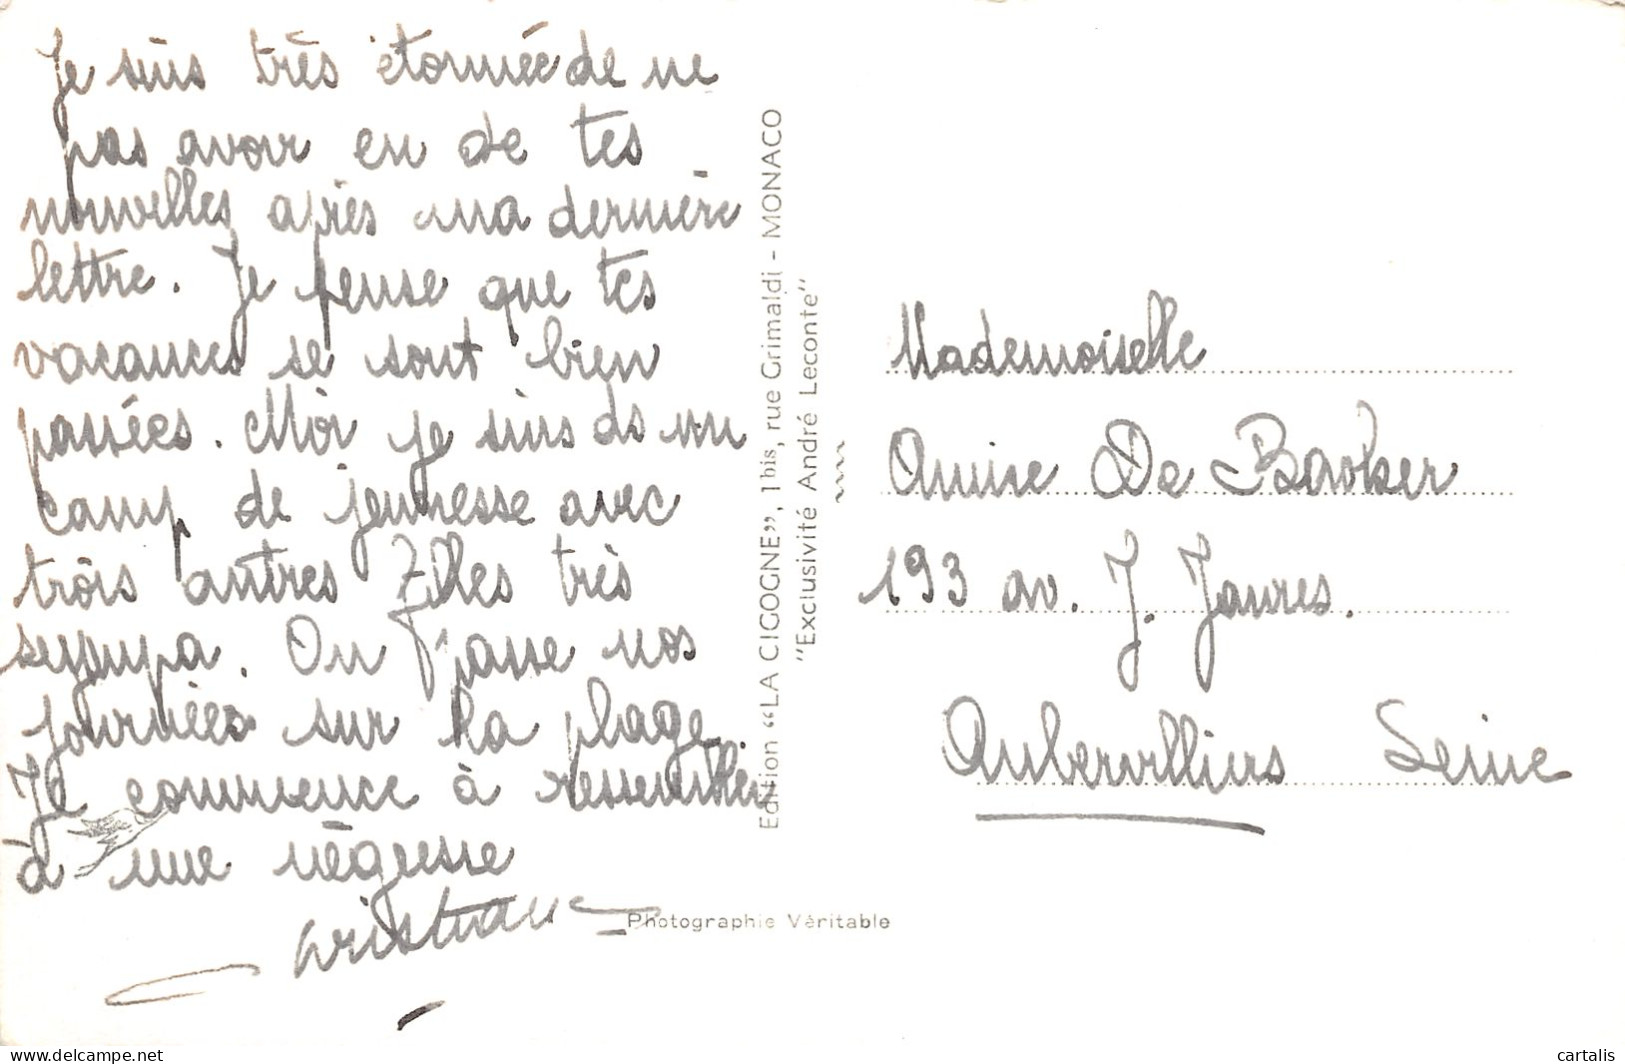 Je suis très étonnée de ne
pas avoir eu de tes
nouvelles après ma dernière
lettre. Je pense que tes
vacances se sont bien
passées. Moi je suis ds un
camp de jeunesse avec
trois autres filles très
sympa. On passe nos
journées sur la plage
Je commence à ressembler
à une négresse
Christiane
Edition "LA CIGOGNE", 1 bis, rue Grimaldi - MONACO
"Exclusivité André Leconte"
Photographie Véritable
Mademoiselle
De
193 av. J. Jaures.
Aubervilliers Seine
delcampe.net
cartalis